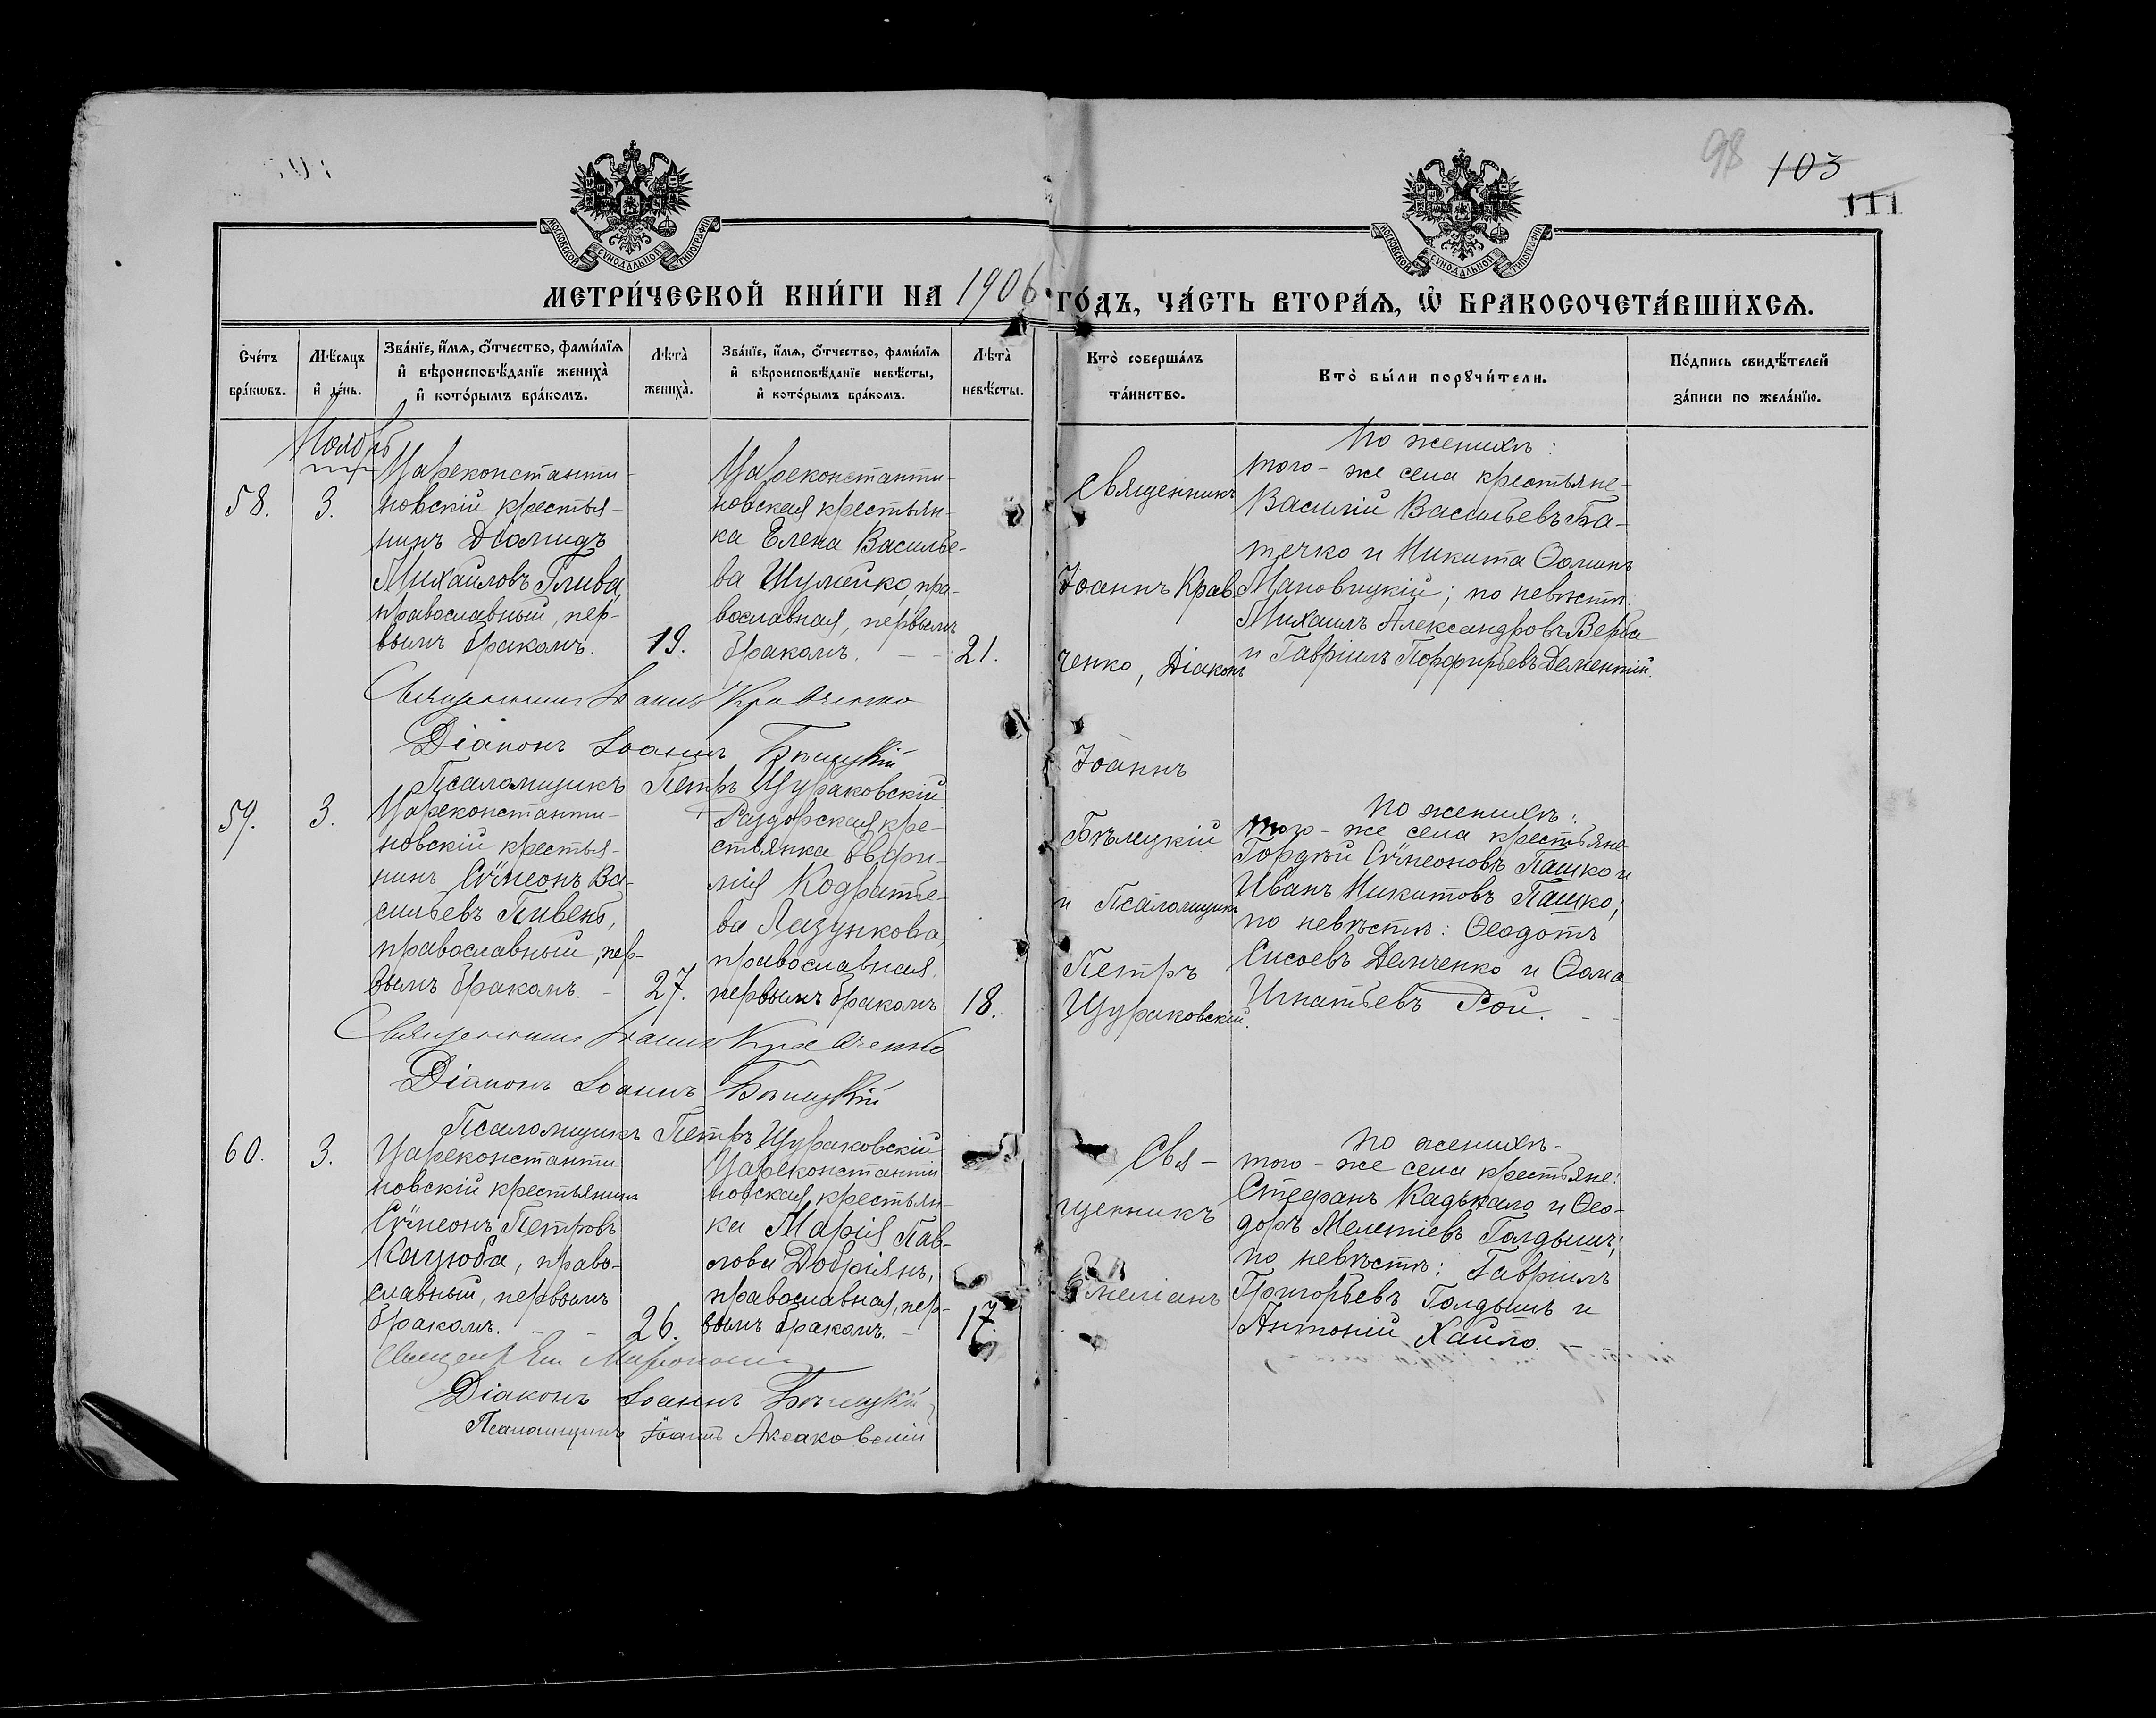 98 103
111
МОСКОВСКОЙ СѴНОДАЛЬНОЙ ТИПОГРАФІИ
МОСКОВСКОЙ СѴНОДАЛЬНОЙ ТИПОГРАФІИ
МЕТРИ́ЧЕСКОЙ КНИ́ГИ НА 1906 ГО́ДЪ, ЧА́СТЬ ВТОРА́Ѧ, Ѡ҆ БРАКОСОЧЕТА́ВШИХСѦ.
Сче́тъ
бра́кѡвъ.
Мѣ́сѧцъ
и҆ де́нь.
Зва́нїе, и҆́мѧ, ѻ҆́тчество, фами́лїѧ
и҆ вѣроисповѣ́данїе жениха̀
и҆ кото́рымъ бра́комъ.
Лѣ́та̀
жениха̀.
Зва́нїе, и҆́мѧ, ѻ҆́тчество, фами́лїѧ
и҆ вѣроисповѣ́данїе невѣ́сты,
и҆ кото́рымъ бра́комъ.
Лѣ́та̀
невѣ́сты.
Кто̀ соверша́лъ
та́инство.
Кто̀ бы́ли порꙋчи́тели.
По́дпись свидѣ́телей
за́писи по жела́нїю.
Ноябрь
58.
3.
Цареконстанти-
новскій крестья-
нинъ Діомидъ
Михаиловъ Глива,
православный, пер-
вымъ бракомъ.
19.
Цареконстанти-
новская крестьян-
ка Елена Василье-
ва Шулейко, пра-
вославная, первымъ
бракомъ. — -
21.
Священникъ
Іоаннъ Крав-
ченко, Діаконъ
Іоаннъ
Бѣлецкій
и Псаломщикъ
Петръ
Щураковскій.
По женихѣ:
того-же села крестьяне-
Василій Васильевъ Ба-
течко и Никита Ѳоминъ
Мановицкій; по невѣстѣ:
Михаилъ Александровъ Верба
и Гавріилъ Порфирьевъ Дементій.
Священникъ Іоаннъ Кравченко
Діаконъ Іоаннъ Бѣлецкій
Псаломщикъ Петръ Щураковскій
59.
3.
Цареконстанти-
новскій крестья-
нинъ Сѵмеонъ Ва-
сильевъ Пивень,
православный, пер-
вымъ бракомъ. -
27.
Раздорская кре-
стьянка Евфи-
мія Кодратье-
ва Лазункова,
православная,
первымъ бракомъ
18.
По женихѣ:
того-же села крестьяне
Гордѣй Сѵмеоновъ Пашко и
Иванъ Никитовъ Пашко;
по невѣстѣ: Ѳеодотъ
Сисоевъ Демченко и Ѳома
Игнатьевъ Рой. - -
Священникъ Іоаннъ Кравченко
Діаконъ Іоаннъ Бѣлецкій
Псаломщикъ Петръ Щураковскій
60.
3.
Цареконстанти
новскій крестьянинъ
Сѵмеонъ Петровъ
Кацюба, право-
славный, первымъ
бракомъ. - -
26.
Цареконстанти
новская крестьян-
ка Марія Пав-
лова Добріянъ,
православная, пер-
вымъ бракомъ. -
17.
Свя-
щенникъ
Емеліанъ
По женихѣ-
того-же села крестьяне:
Стефанъ Кадькало и Ѳео-
доръ Мелетіевъ Голдышъ;
по невѣстѣ: Гавріилъ
Григорьевъ Голдышъ и
Антоній Хайло.
Діаконъ Іоаннъ Бѣлецкій
Псаломщикъ Іоаннъ Аксаковскій